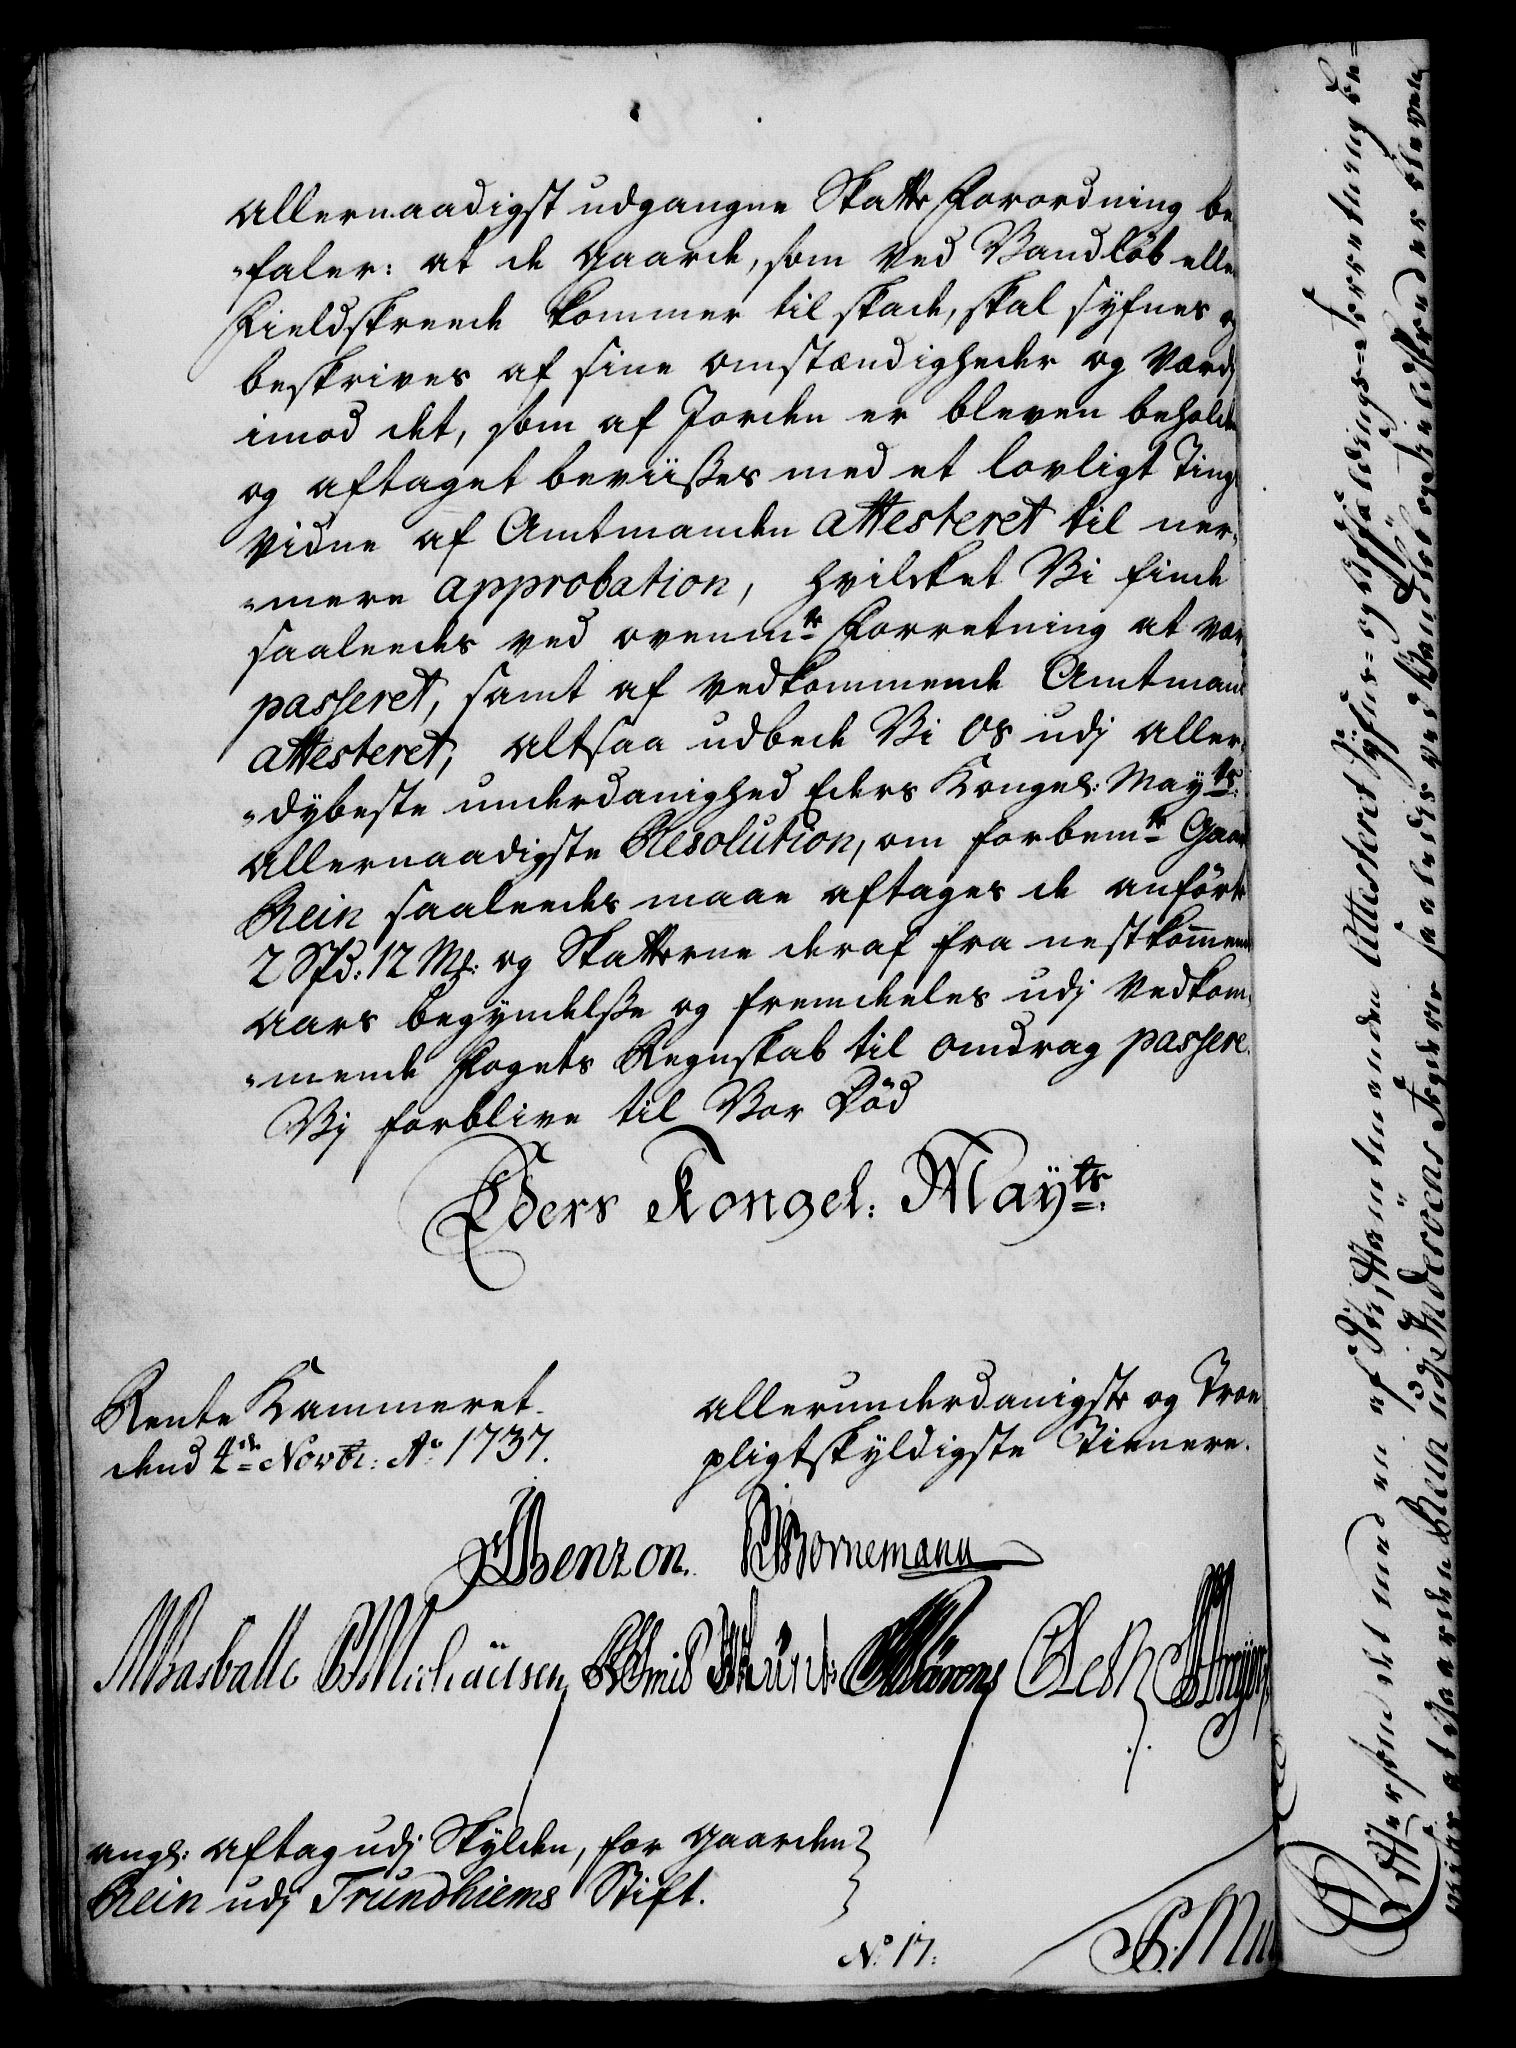 allernaadigst udgangne Skatte Forordning be
"faler: at de gaarde, som ved Vandløb eller
Fieldskreede kommer til skade, skal syfnes og
beskrives af sine omstændigheder og værdj
imod det, som af Jorden er bleven beholde
og aftaget beviisses med et lovligt Tings
Vidne af Amtmanden attesteret til ner-
"mere approbation, hvilcket Vi finde
saaleedes ved ovenmte Forretning at være
passeret, samt af vedkommende Amtmand
attesteret, altsaa udbede Vi os udj aller-
"dybeste underdanighed Eders Kongel: Mayts:
allernaadigste Resolution, om forbemte Gaard
Rein saaleedes maae aftages de anførte
2 Spd: 12 Mk: og Skatterne deraf fra nestkommende
aars begyndelsse og fremdeeles udj vedkom-
"mende Fogets Regnskab til omdrag passere.
Vj forblive til Vor Død
Eders Kongel: Mayts:
Rente Kammeret.
dend 4de Novbr: Ao 1737.
allerunderdanigste og Troe
pligtskyldigste Tienere.
Benzon. Bornemann
Basballe
angl: aftag udj Skylden, for gaarden
Rein udj Trundhiems Stift.
No. 17:
Eftersom det med en af Stiftamtmanden Attesteret Syfns- og Affældings-Forretning be-
viises at Gaarden Rein udj Inderøens Fogderie saaledes ved Vandløb og Fieldskreeder er bleven